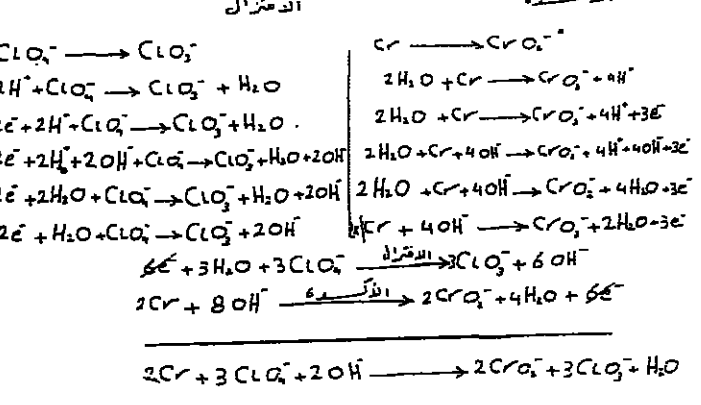 الاختزال
ClO₄⁻ → ClO₃⁻
2H⁺+ClO₄⁻ → ClO₃⁻ + H₂O
2e⁻+2H⁺+ClO₄⁻ → ClO₃⁻+H₂O .
2e⁻+2H⁺+2OH⁻+ClO₄⁻ → ClO₃⁻+H₂O+2OH⁻
2e⁻+2H₂O+ClO₄⁻ → ClO₃⁻+H₂O+2OH⁻
2e⁻+H₂O+ClO₄⁻ → ClO₃⁻+2OH⁻
Cr → CrO₂⁻
2H₂O+Cr → CrO₂⁻+4H⁺
2H₂O+Cr → CrO₂⁻+4H⁺+3e⁻
2H₂O+Cr+4OH⁻ → CrO₂⁻+4H⁺+4OH⁻+3e⁻
2H₂O+Cr+4OH⁻ → CrO₂⁻+4H₂O+3e⁻
Cr + 4OH⁻ → CrO₂⁻+2H₂O+3e⁻
6e⁻+3H₂O+3ClO₄⁻ الاختزال → 3ClO₃⁻+6OH⁻
2Cr + 8OH⁻ الأكسدة → 2CrO₂⁻+4H₂O+6e⁻
2Cr+3ClO₄⁻+2OH⁻ → 2CrO₂⁻+3ClO₃⁻+H₂O